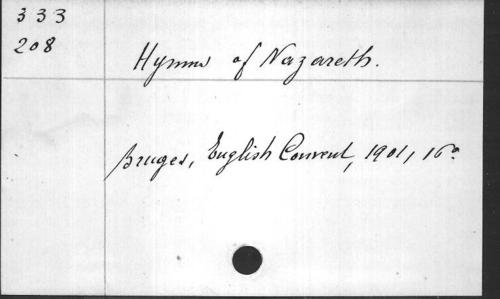 333
208
Hymns of Nazareth.
Bruges, English Convent, 1901, 16º